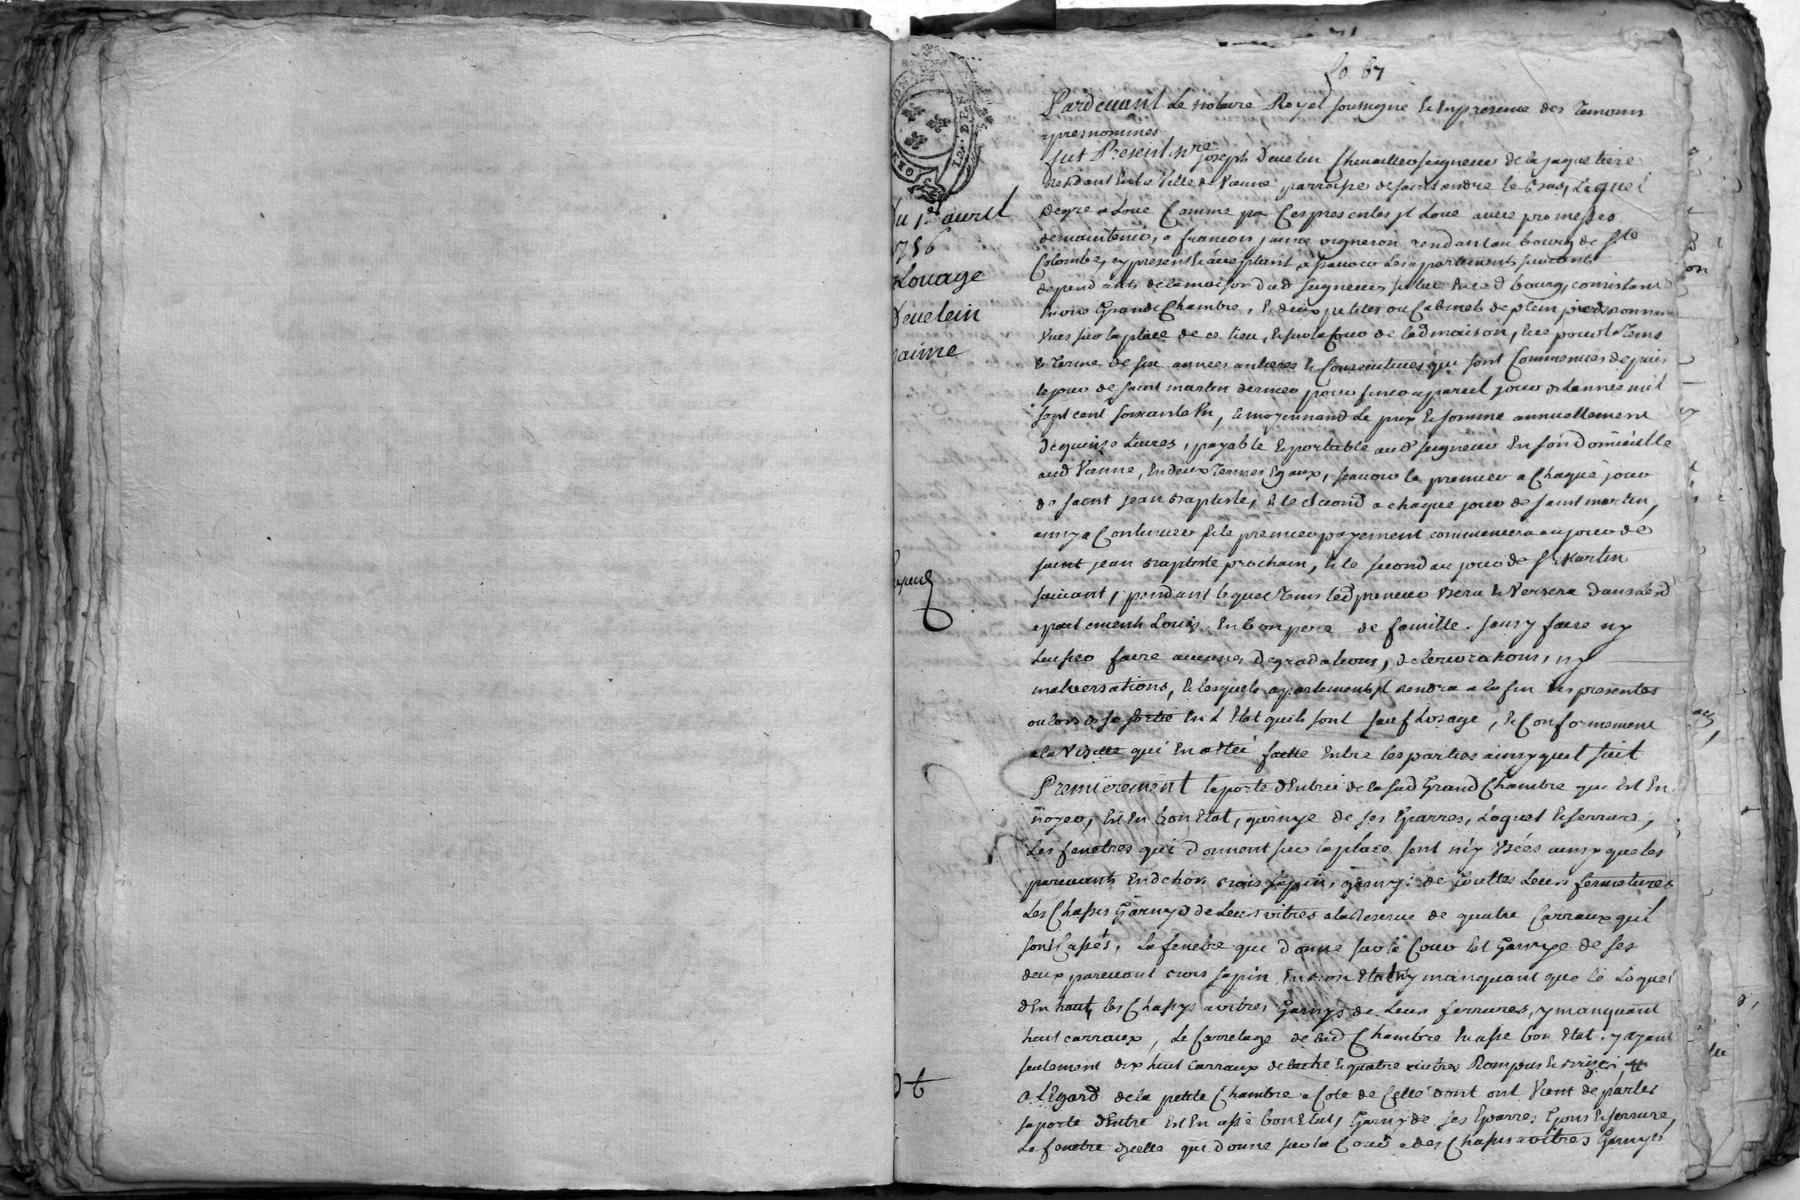 fo 67
Du 1er avril
1756
Louage
Develein
jaime
Pardevant Le notaire Royal soussigné & En presence des Temoins
ypres nommes
fut Present mre joseph Develin Chevaillier seigneur de la jaquetiere
residant En la Ville de Vienne parroisse de saint andre le bas, Lequel
de gre a Loué Comme par Ces presentes jl Loue avec promesses
de maintenir, a francois jaime vigneron residant au bourg de ste
Colombe, cy present & acceptant, a scavoir Les apartements suivants
dependants de la maison dud seigneur scitué En ced bourg, consistant
En une Grande Chambre, & deux petites ou Cabinets de plein pied
vues sur la place de ce lieu, & sur la Cour de lad maison, & ce pour le Tems
& Terme de six années antieres & Consecutives qui sont Commencés depuis
le jour de saint martin dernier pour finir a pareil jour de Lannée mil
sept cent soixante Un, & moyennand Le prix & somme annuellement
De quinze Livres, payable & portable aud seigneur En son Domicille
aud Vienne, En deux Termes Egaux, scavoir le premier a Chaque jour
de saint jean Baptiste, & le second a chaque jour de saint martin,
ainsy a Continuer & le premier payement commencera au jour de
saint jean Baptiste prochain, & le second au jour de st Martin
suivant, pendant lequel Tems led preneur Usera & Versera Dans lesd
apartements Loués En bon pere de famille sans y faire ny
Laisser faire aucunes degradations, deteriorations, ny
malversations, & lesquels apartements jl rendra a la fin des presentes
ou lors de sa sortie En L'Etat quils sont sauf Lusage, & Conformement
a la Visitte qui En a Eté faitte Entre les parties ainsy quil suit
Premierement la porte d'Entrée de la sud Grand Chambre qui Est En
noyer, Est En bon Etat, garnye de ses Eparres, Loquet & serrure,
Les fenetres qui donnent sur la place sont my Usées ainsy que les
parevants En dehors bois sapin, garnys de touttes Leurs fermetures
Les Chassis Garnys de Leurs vitres a la Reserve de quatre Carraux qui
sont Cassés, La fenetre qui donne sur la Cour Est Garnye de ses
deux parevant bois sapin En bon Etat ny manquant que le Loquet
d'En haut, les Chassys a vitres Garnys de Leurs ferrures, y manquant
huit carraux, Le Carrelage de lad Chambre En assé bon Etat y ayant
seulement dix huit Carraux & quatre autres Rompus
a L'Egard de la petite Chambre a Coté de Celle dont ont Vient de parler
la porte d'Entré Est En assé bon Etat, Garny de ses Eparres, Gons & serrure,
La fenetre d'jcelle qui donne sur la Cour a des Chassis a vitres Garnys